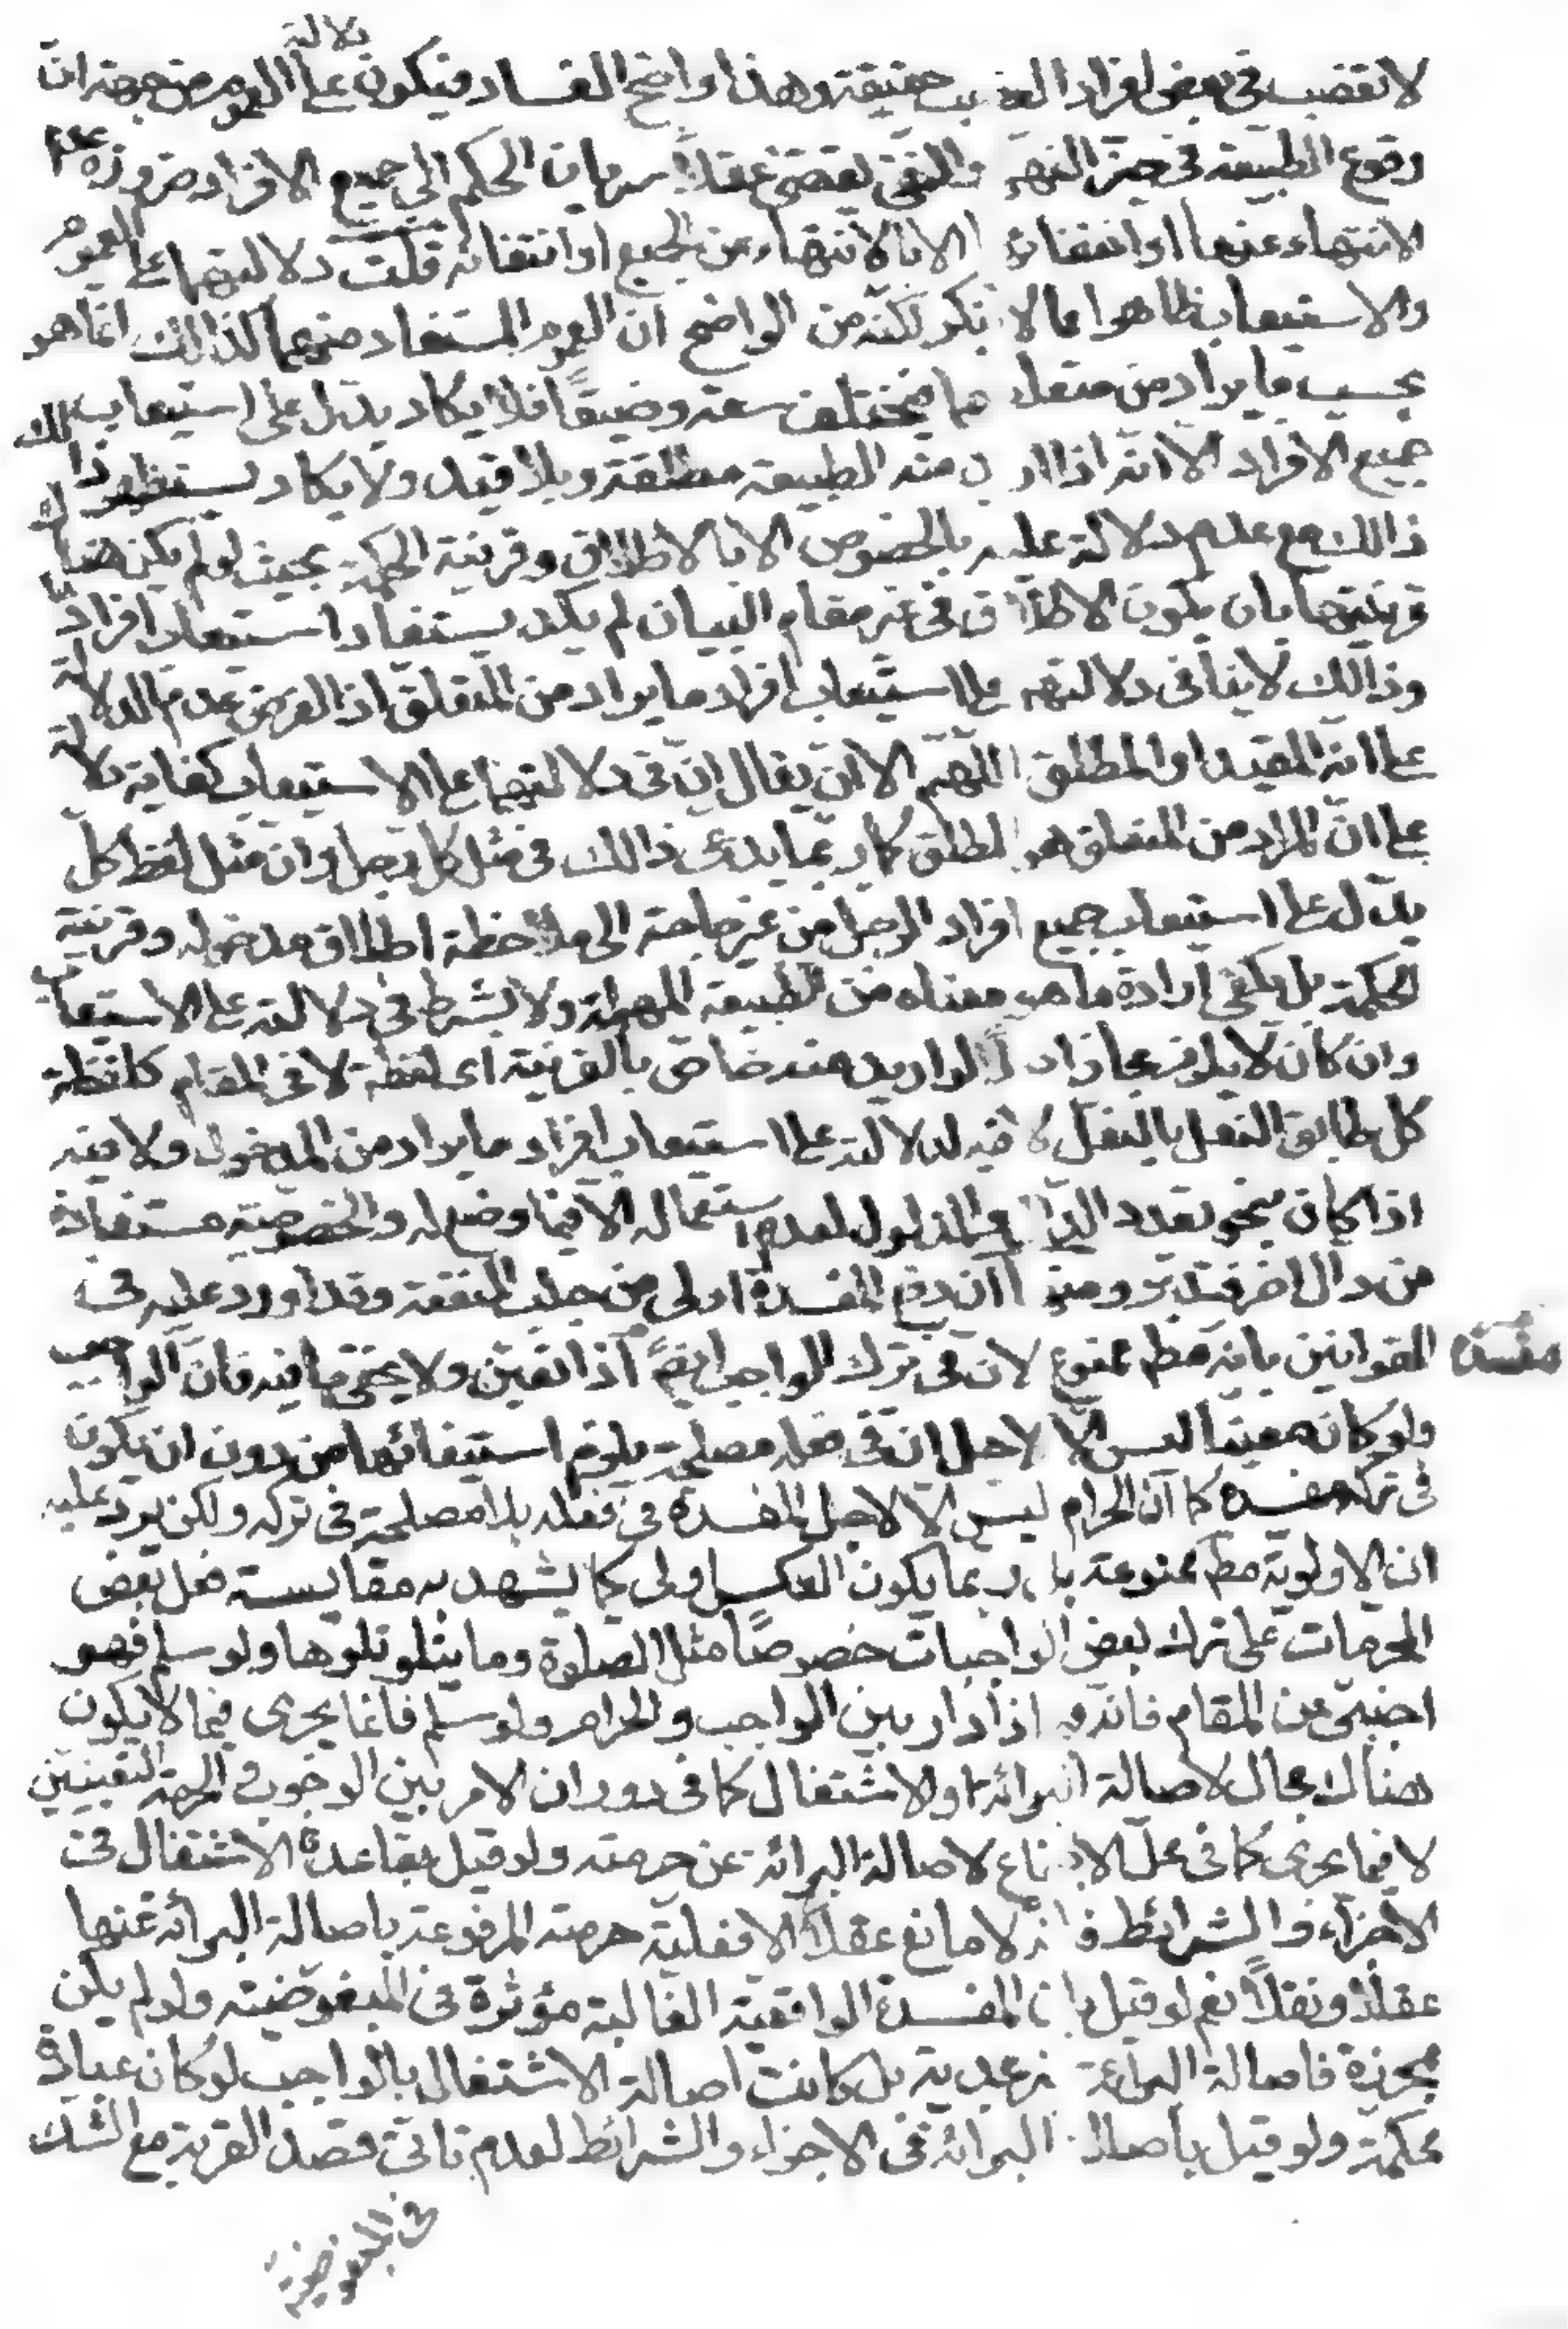 لا تغصب فى بعض افراد الغصب حقيقة وهذا واضح الفساد فيكون دلالته على العموم من جهة ان
وقوع الطبيعة فى حيز النهى والنفى يقتضى عقلاً سريان الحكم الى جميع الافراد ضرورة عدم
الانتهاء عنها او انتفائه الا بالانتهاء عن الجميع او انتفائه قلت دلالتهما على العموم
والاستيعاب ظاهرا مما لا ينكر لكنه من الواضح ان العموم المستفاد منهما كذالك انما هو
بحسب ما يراد من متعلقهما فيختلف سعة وضيقًا فلا يكاد يدل على استيعاب
جميع الافراد الا انه اذا اريد منه الطبيعة مطلقة وبلا قيد ولا يكاد يستظهر ذالك
ذالك مع عدم دلالة عليه بالخصوص الا بالاطلاق وقرينة الحكمة بحيث لو لم يكن هناك
قرينتها بان يكون الاطلاق فى غير مقام البيان لم يكد يستفاد استيعاب افراد
وذالك لا ينافى دلالتهما على استيعاب افراد ما يراد من المتعلق اذ الفرض عدم الدلالة
على انه المقيد او المطلق اللهم الا ان يقال ان فى دلالتهما على الاستيعاب كفاية دلالة
على ان المراد من المتعلق هو المطلق كما ربما يدعى ذالك فى مثل كل رجل وان مثل لفظ كل
يدل على استيعاب جميع افراد الرجل من غير حاجة الى ملاحظة اطلاق مدخوله وقرينة
الحكمة بل يكفى ارادة ما هو معناه من الطبيعة المهملة ولا بشرط فى دلالته على الاستيعاب
وان كان لا يلزم مجاز اذ لو اريد منه خاص بالقرينة اى لفظة لا فى المقام كلفظة
كل طابق النعل بالنعل لا فيه لدلالته على استيعاب افراد ما يراد من المدخول ولا فيه
اذا كان بنحو تعدد الدال والمدلول لعدم استعماله الا فيما وضع له والخصوصية مستفادة
من دال اخر فتدبر ومنها ان دفع المفسدة اولى من جلب المنفعة وقد اورد عليه فى
القوانين بانه مطم ممنوع لان فى ترك الواجب ايضًا مفسدة اذا تعين ولا يخفى ما فيه فان الواجب
ولو كان معينا ليس الا لاجل ان فى فعله مصلحة يلزم استيفائها من دون ان يكون
فى تركه مفسدة كما ان الحرام ليس الا لاجل المفسدة فى فعله بلا مصلحة فى تركه ولكن يرد عليه
ان الاولوية مطم ممنوعة بل ربما يكون العكس اولى كما يشهد به مقايسة فعل بعض
المحرمات على ترك بعض الواجبات خصوصًا مثل الصلوة وما يتلو تلوها ولو سلم فهو
اجنبى عن المقام فانه فيما اذا دار بين الواجب والحرام ولو سلم فانما يجرى فيما لا يكون
هناك مجال لاصالة البرائة او الاشتغال كما فى دوران الامر بين الوجوب والحرمة التعيينين
لا فيما يجرى كما فى محل الاجتماع لاصالة البرائة عن حرمته ولو قيل بقاعدة الاشتغال فى
الاجزاء والشرائط فانه لا مانع عقلاً الا فعلية حرمته المرفوعة باصالة البرائة عنها
عقلاً ونقلاً نعم لو قيل بان المفسدة الواقعية الغالبة مؤثرة فى المبغوضية ولو لم يكن
محرزة فاصالة البرائة غير مجدية بل كانت اصالة الاشتغال بالواجب لو كان عبادة
محكمة ولو قيل باصالة البرائة فى الاجزاء والشرائط لعدم تاتى قصد القربة مع الشك
فى المبغوضية